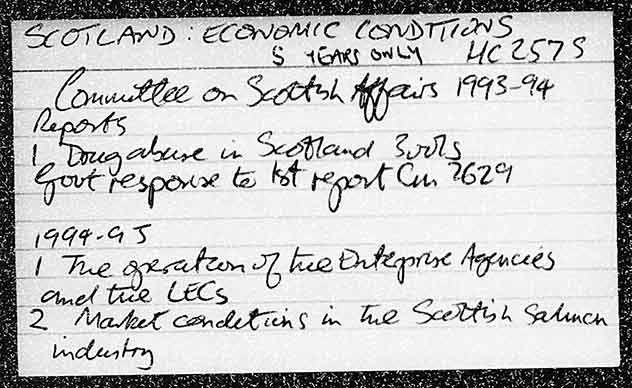 SCOTLAND: ECONOMIC CONDITIONS
5 YEARS ONLY HC 257 S
Committee on Scottish Affairs 1993-94
Reports
1 Drug abuse in Scotland 3 vols
Govt response to 1st report Cm 2629
1994-95
1 The operation of the Enterprise Agencies
and the LECs
2 Market conditions in the Scottish salmon
industry